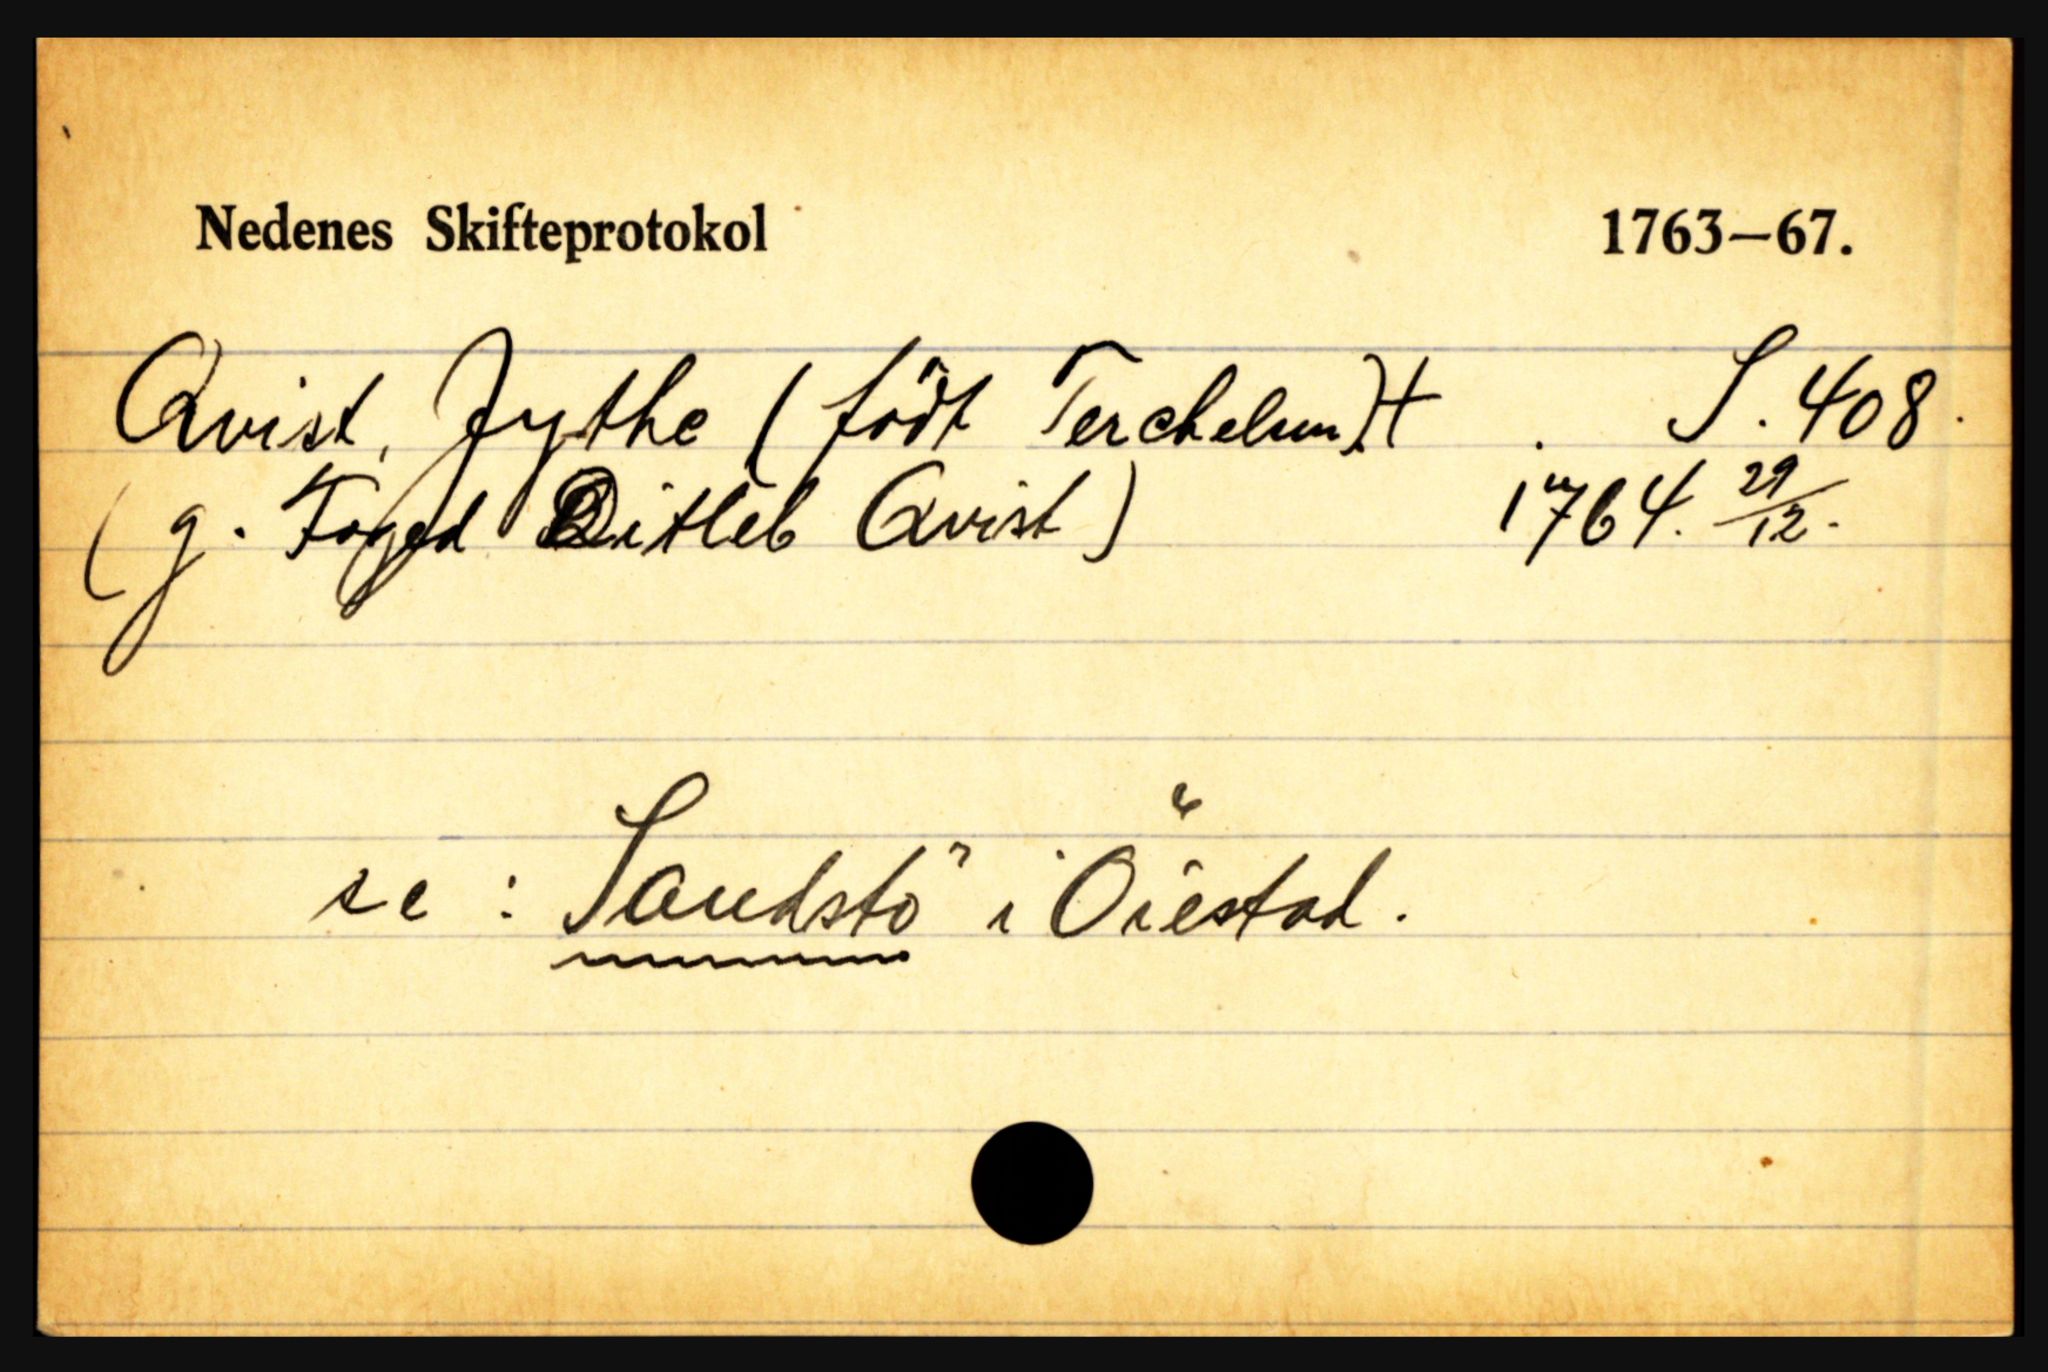 Nedenes Skifteprotokol 1763—67.
Qvist, Jythe (födt Terchelsen)† S. 408.
(g. Foged Ditleb Qvist) 1764. 29/12.
se: Sandstö i Öiestad.